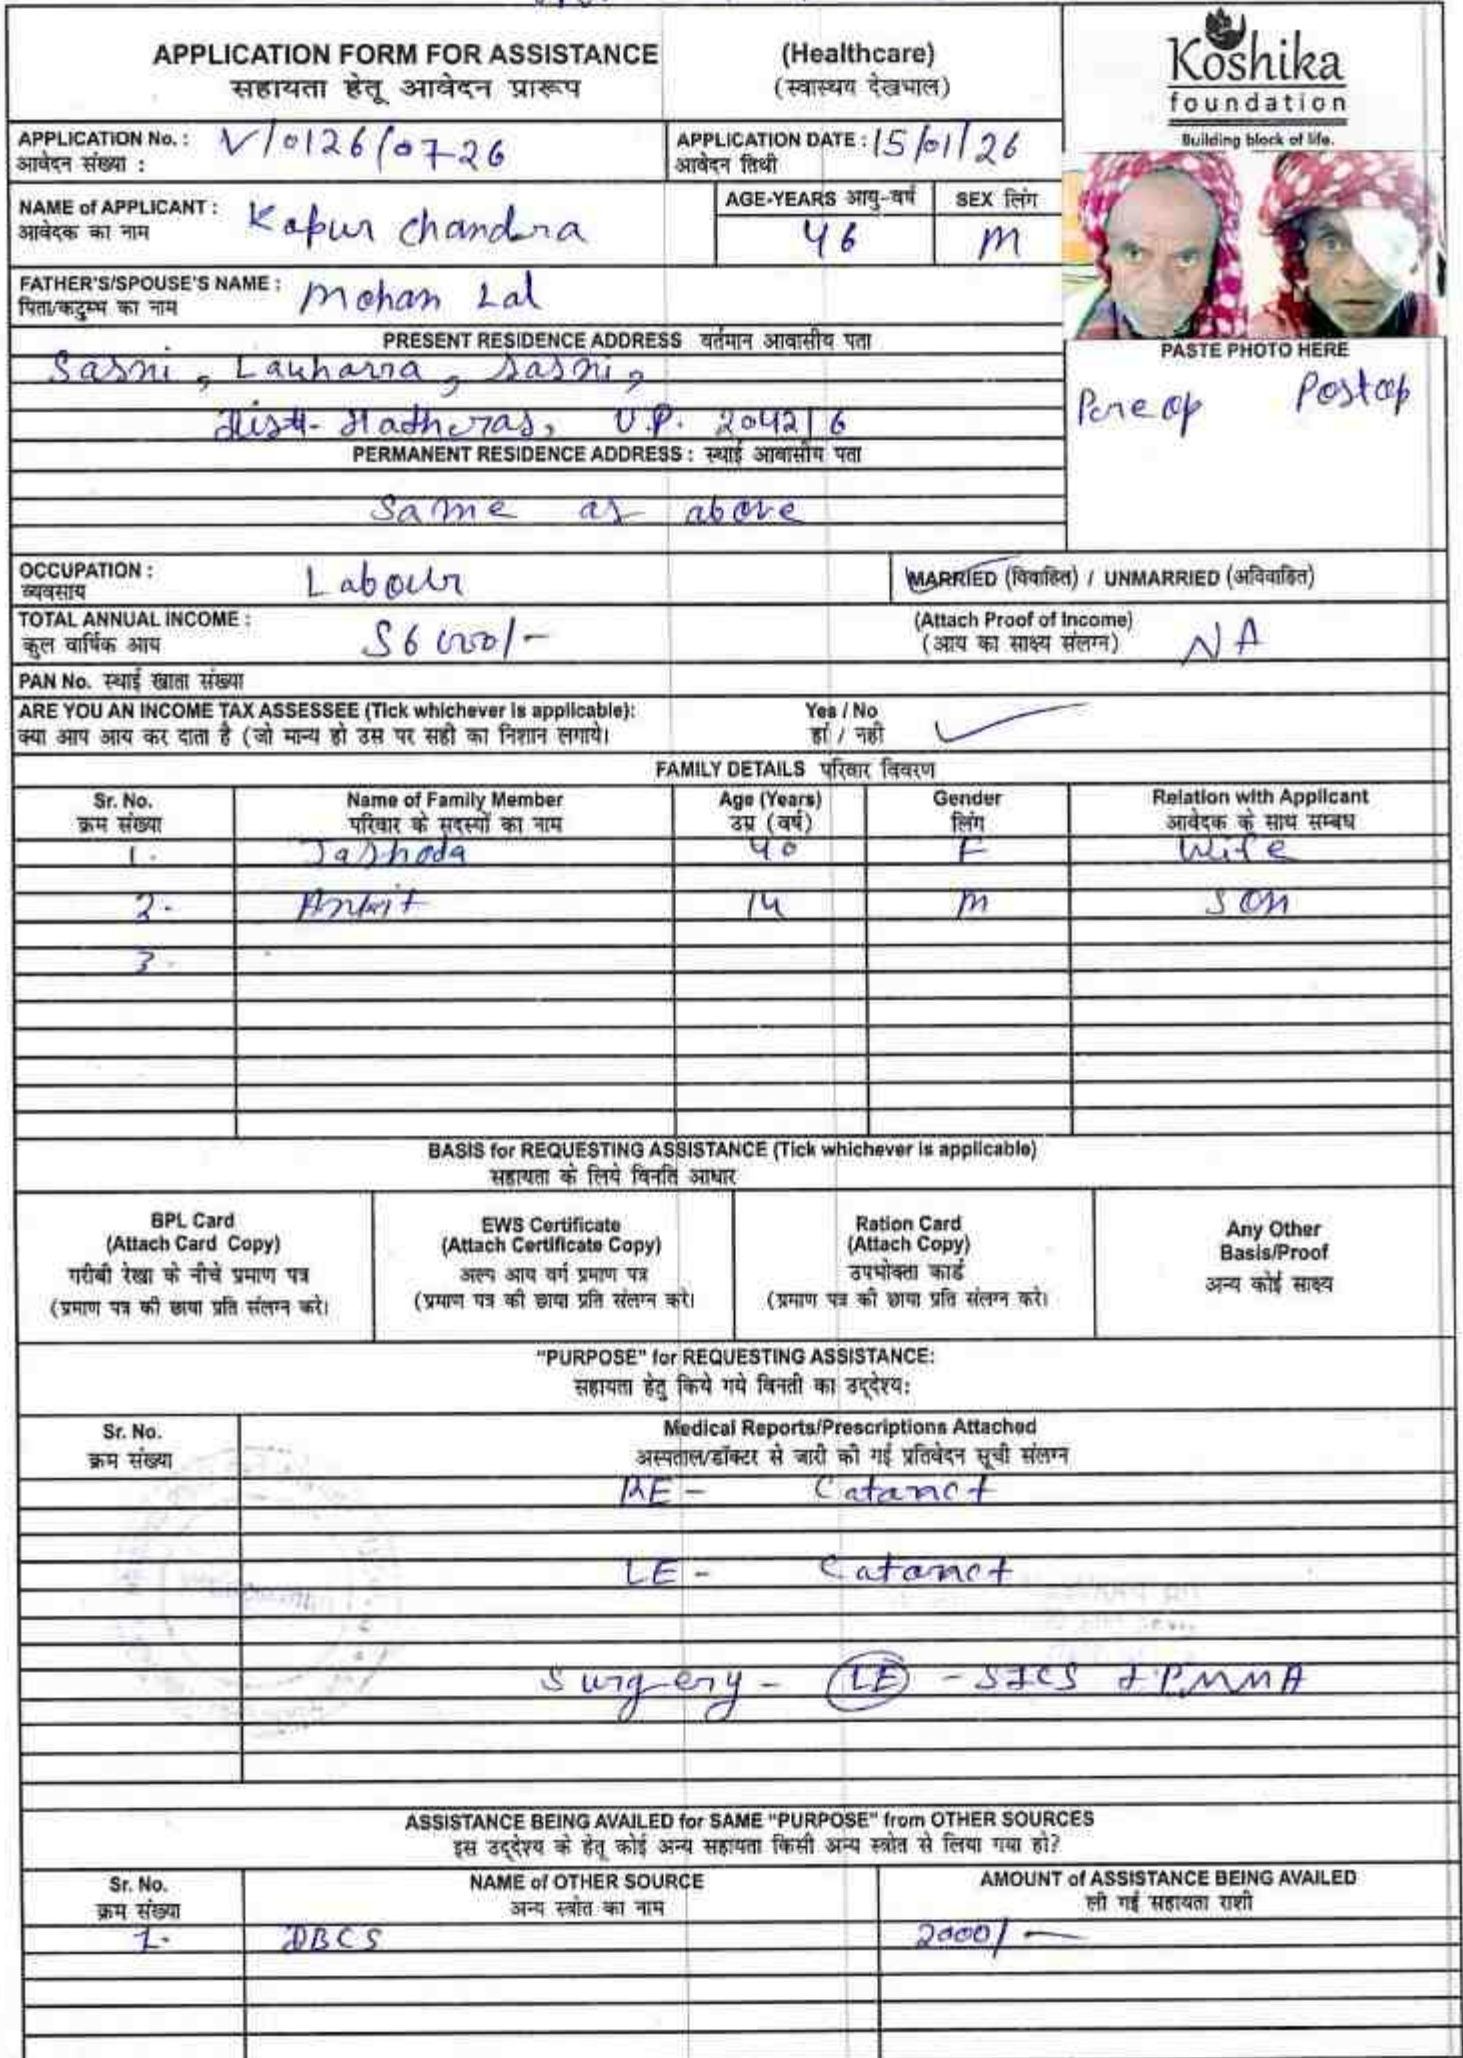 APPLICATION FORM FOR ASSISTANCE
सहायता हेतू आवेदन प्रारूप
(Healthcare)
(स्वास्थय देखभाल)
Koshika
foundation
Building block of life.
APPLICATION No. : V/0126/07-26
आवेदन संख्या :
APPLICATION DATE : 15/01/26
आवेदन तिथी
NAME of APPLICANT : Kapur Chandra
आवेदक का नाम
AGE-YEARS आयु-वर्ष
46
SEX लिंग
M
FATHER'S/SPOUSE'S NAME : Mohan Lal
पिता/कटुम्भ का नाम
PRESENT RESIDENCE ADDRESS वर्तमान आवासीय पता
Sasni, Lauharra, Sasni,
Distt- Hathras, U.P. 204216
PASTE PHOTO HERE
Pre op Post op
PERMANENT RESIDENCE ADDRESS : स्थाई आवासीय पता
Same as above
OCCUPATION : Labour
व्यवसाय
MARRIED (विवाहित) / UNMARRIED (अविवाहित)
TOTAL ANNUAL INCOME : 56000/-
कुल वार्षिक आय
(Attach Proof of Income) NA
(आय का साक्ष्य संलग्न)
PAN No. स्थाई खाता संख्या
ARE YOU AN INCOME TAX ASSESSEE (Tick whichever is applicable): Yes / No
क्या आप आय कर दाता है (जो मान्य हो उस पर सही का निशान लगाये। हां / नही
FAMILY DETAILS परिवार विवरण
Sr. No. Name of Family Member Age (Years) Gender Relation with Applicant
क्रम संख्या परिवार के सदस्यों का नाम उम्र (वर्ष) लिंग आवेदक के साथ सम्बध
1. Jashoda 40 F Wife
2. Ankit 14 M Son
3.
BASIS for REQUESTING ASSISTANCE (Tick whichever is applicable)
सहायता के लिये विनति आधार
BPL Card
(Attach Card Copy)
गरीबी रेखा के नीचे प्रमाण पत्र
(प्रमाण पत्र की छाया प्रति संलग्न करे।
EWS Certificate
(Attach Certificate Copy)
अल्प आय वर्ग प्रमाण पत्र
(प्रमाण पत्र की छाया प्रति संलग्न करे।
Ration Card
(Attach Copy)
उपभोक्ता कार्ड
(प्रमाण पत्र की छाया प्रति संलग्न करे।
Any Other
Basis/Proof
अन्य कोई साक्ष्य
"PURPOSE" for REQUESTING ASSISTANCE:
सहायता हेतु किये गये विनती का उद्देश्य:
Sr. No. Medical Reports/Prescriptions Attached
क्रम संख्या अस्पताल/डॉक्टर से जारी की गई प्रतिवेदन सूची संलग्न
RE - Cataract
LE - Cataract
Surgery - LE - SICS + PMMA
ASSISTANCE BEING AVAILED for SAME "PURPOSE" from OTHER SOURCES
इस उद्देश्य के हेतू कोई अन्य सहायता किसी अन्य स्त्रोत से लिया गया हो?
Sr. No. NAME of OTHER SOURCE AMOUNT of ASSISTANCE BEING AVAILED
क्रम संख्या अन्य स्त्रोत का नाम ली गई सहायता राशी
1. DBCS 2000/-